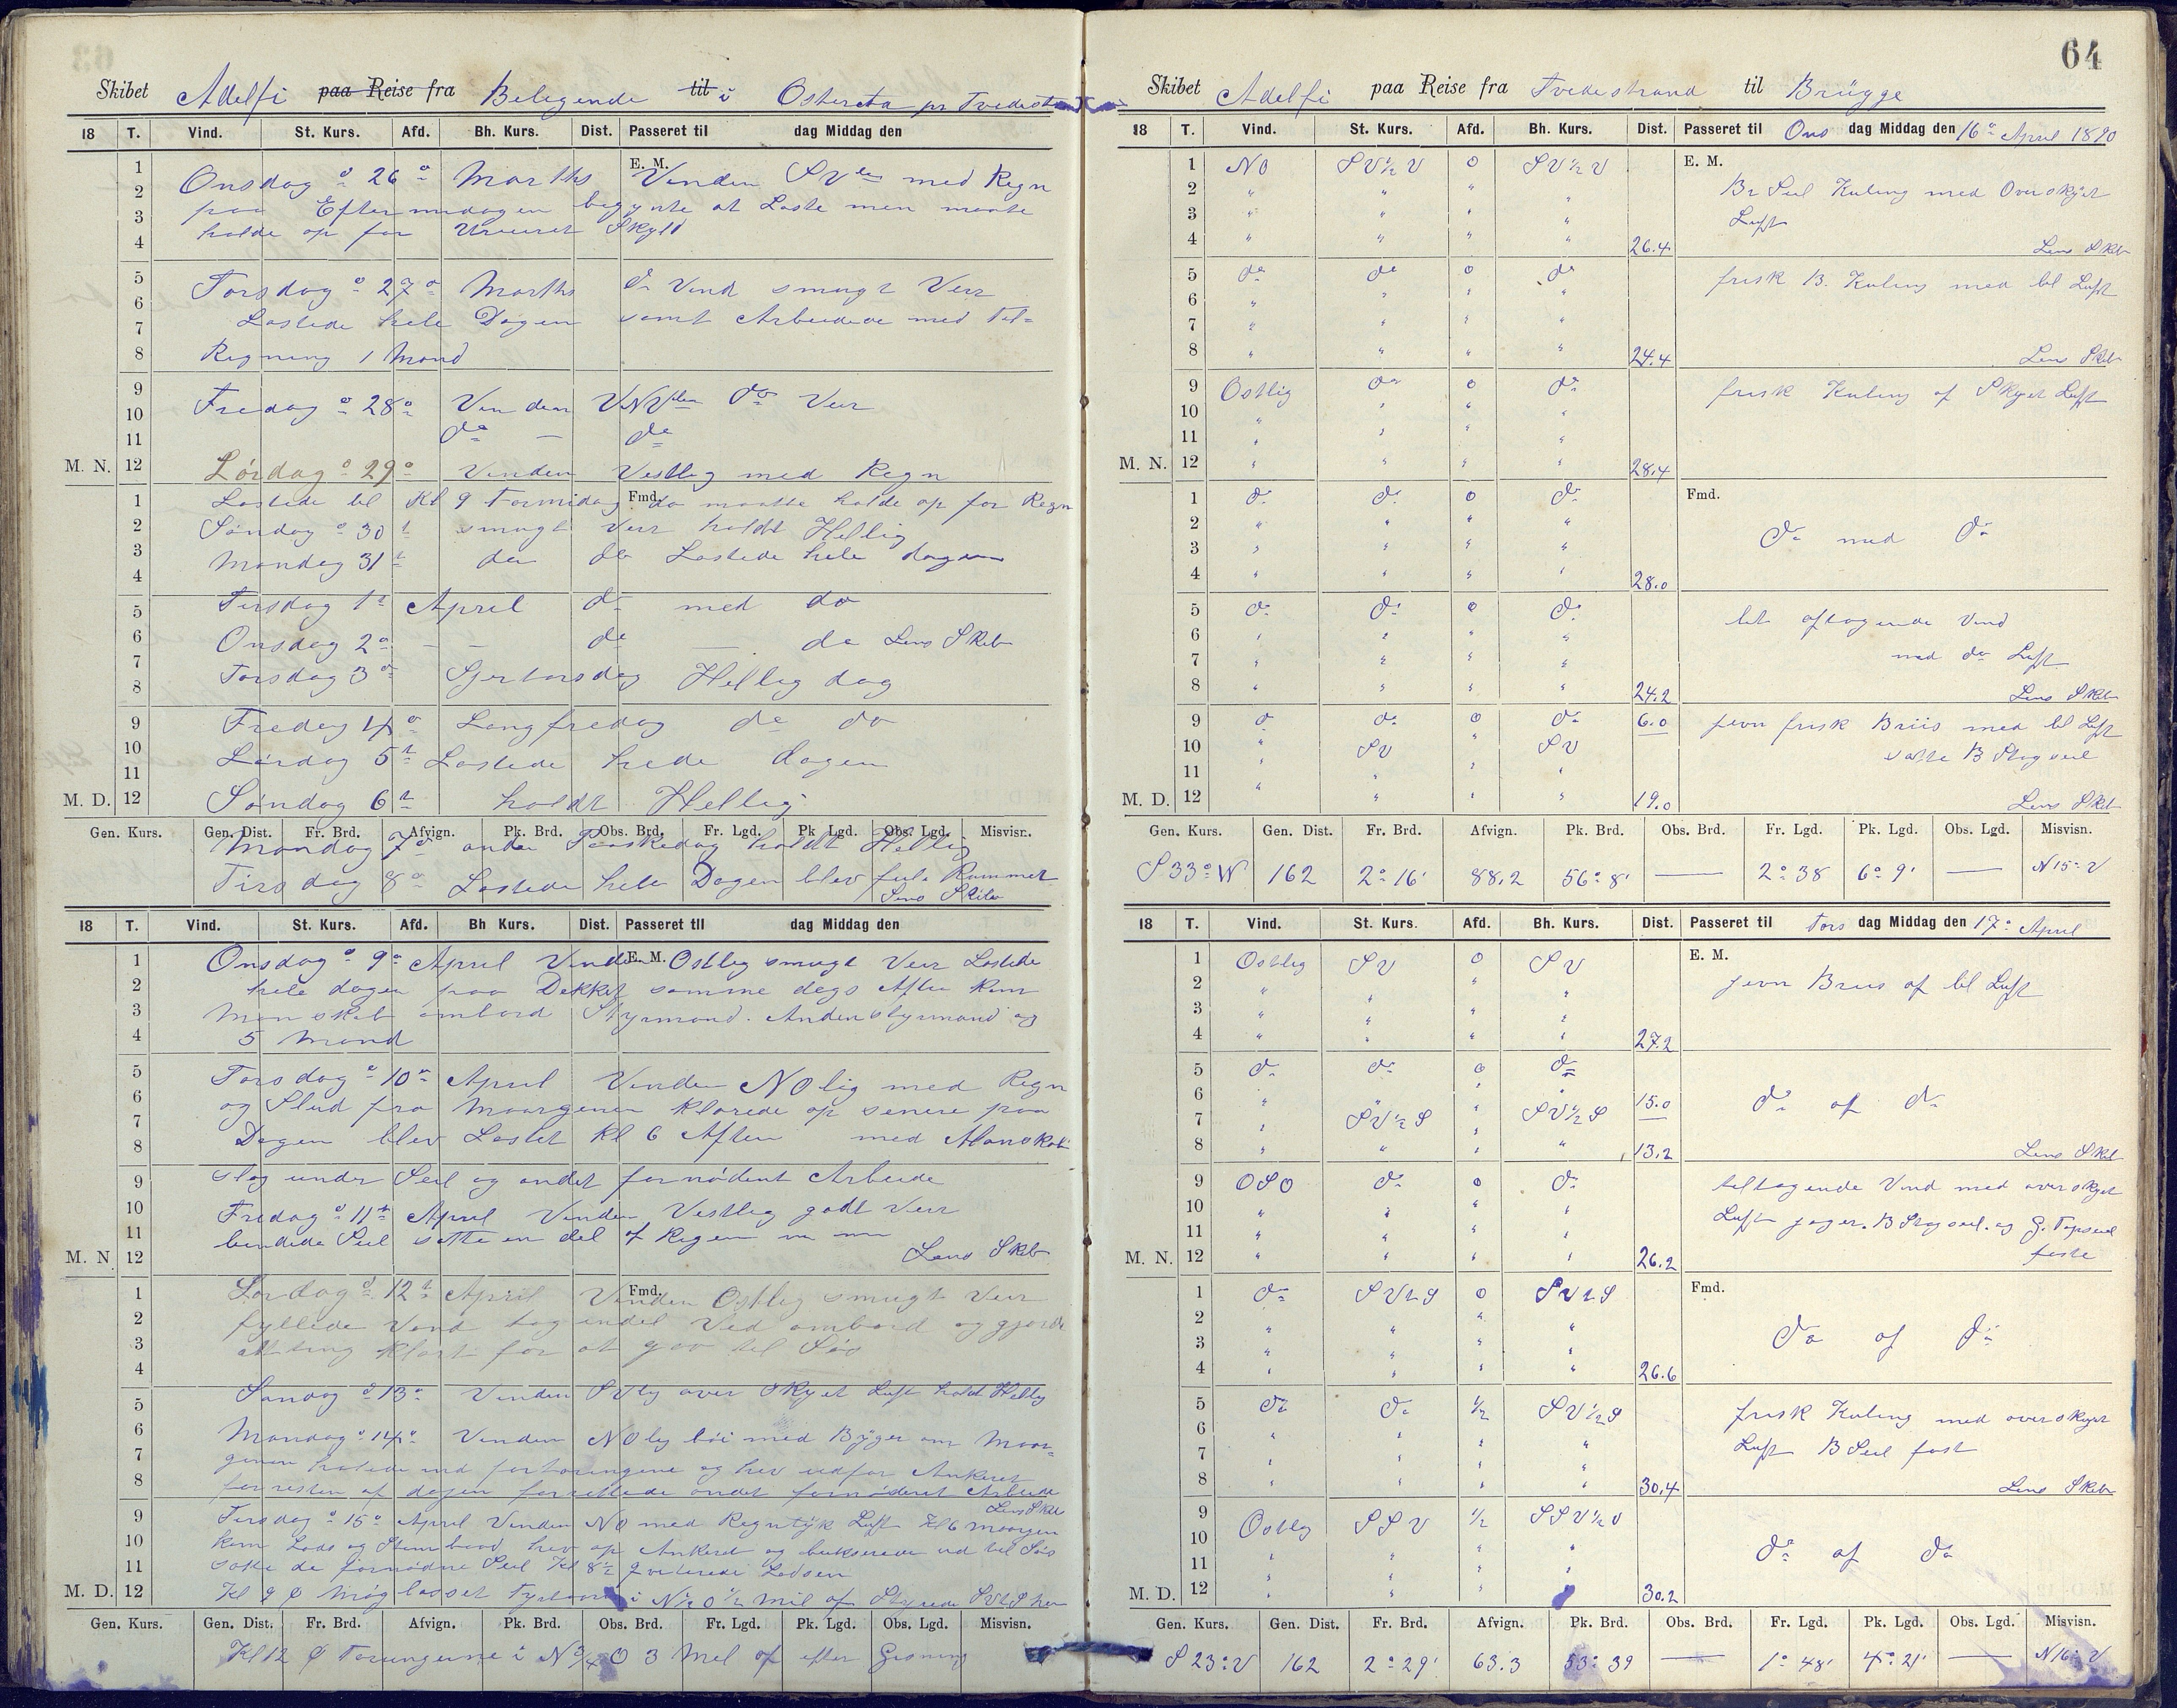 Skibet Adelfi paa Reise fra Belegende til i Ostereta pr Tvedest
18 T. Vind. St. Kurs. Afd. Bh. Kurs. Dist. Passeret til dag Middag den
E. M.
Onsdag d 26de Marths Vinden SVlen med Regn
paa Eftermidagen begynte at Laste men maate
holde op for Urveiret Skyld
Torsdag d 27de Marths do Vind smugt Veir
Lastede hele Dagen samt Arbeidede med Tel=
Regning 1 Mand
Fredag d 28de Vinden VNVlen do Veir
do — do
M. N. Lørdag d 29de Vinden Vestleg med Regn
Fmd.
Lastede til Kl 9 Formidag da maatte holde op for Regn
Søndag d 30t smugt Veir holdt Hellig
Mandag 31t do do Lastede hele dagen
Tirsdag 1t April do med do
Onsdag 2de — — do — do Lens Skib
Torsdag 3de Sjertorsdag Hellig dag
Fredag 4de Langfredag do do
Lørdag 5t Lastede hede dagen
M. D. Søndag 6t holdt Hellig
Gen. Kurs. Gen. Dist. Fr. Brd. Afvign. Pk. Brd. Obs. Brd. Fr. Lgd. Pk Lgd. Obs. Lgd. Misvisn.
Mandag 7de anden Paaskedag holdt Hellig
Tirsdag 8de Lastede hele Dagen blev ful i Rummet
Lens Skib
18 T. Vind. St. Kurs. Afd. Bh Kurs. Dist. Passeret til dag Middag den
E. M.
Onsdag d 9de April Vinden Ostleg smugt Veir Lastede
hele dagen paa Dekket samme dags Aften kom
Manskab ombord Styrmand. Andenstyrmand og
5 Mand
Torsdag d 10de April Vinden NOlig med Regn
og Slud fra Maargenen klarede op senere paa
Dagen blev Lastet Kl 6 Aften med Manskab
slog under Seil og andet fornødent Arbeide
Fredag d 11te April Vinden Vestleg godt Veir
bendede Seil satte en del af
M. N. Lens Skib
Fmd.
Lørdag d 12te April Vinden Ostleg smugt Veir
fyllede Vand tog endel Ved ombord og gjorde
alting klart for at gaa til Søs
Søndag d 13de Vinden SVleg overskyet Luft holdt Helleg
Mandag d 14de Vinden NOleg bøi med Byger om Maar=
genen halede ind fortøiningene og hev ud for Ankeret
forresten af dagen forrettede andet fornødent Arbeide
Lens Skib
Tirsdag d 15de April Vinden NO med Regntyk Luft Kl 6 Maargen
kom Lods og Stembaad hev op Ankeret og bukserede ud til Søs
satte de fornødne Seil Kl 8½ qviterede Lodsen
M. D. Kl 9 Møglasset i N½O ½ mil af Styrede
Gen. Kurs. Gen. Dist. Fr. Brd. Afvign. Pk. Brd. Obs. Brd. Fr. Lgd. Pk. Lgd. Obs. Lgd. Misvisn.
Kl 12 Torungerne i N¾O 3 Mil af efter Gisning
64
Skibet Adelfi paa Reise fra Tvedestrand til Brügge
18 T. Vind. St. Kurs. Afd. Bh. Kurs. Dist. Passeret til Ons dag Middag den 16de April 1890
1 NO SV½V 0 SV½V E. M.
2 " " " " Br Seil Kuling med Overskyet
3 " " " " Luft
4 " " " " 26.4 Lens Skib
5 do do 0 do frisk B. Kuling med bl Luft
6 " " " "
7 " " " "
8 " " " " 24.4 Lens Skib
9 Ostlig do 0 do frisk Kuling af Skyet Luft
10 " " " "
11 " " " "
M. N. 12 " " " " 28.4
1 do do 0 do Fmd.
2 " " " "
3 " " " " do med do
4 " " " " 28.0
5 do do 0 do lit aftagende Vind
6 " " " "
7 " " " " med do Luft
8 " " " " 24.2 Lens Skib
9 do do 0 do 6.0 jevn frisk Briis med bl Luft
10 " SV " SV satte B Stagseil
11 " " " "
M. D. 12 " " " " 19.0 Lens Skib
Gen. Kurs. Gen. Dist. Fr. Brd. Afvign. Pk. Brd. Obs. Brd. Fr. Lgd. Pk. Lgd. Obs. Lgd. Misvisn.
S 33° W 162 2° 16' 88.2 56° 8' — 2° 38 6° 9' — N 15° V
18 T. Vind. St. Kurs. Afd. Bh. Kurs. Dist. Passeret til Tors dag Middag den 17de April
1 Ostleg SV 0 SV E. M.
2 " " " " jevn Briis af bl Luft
3 " " " "
4 " " " " 27.2
5 do do 0 do
6 " " " " 15.0 do af do
7 " SV½S " SV½S
8 " " " " 13.2 Lens Skib
9 OSO do 0 do teltagende Vind med overskyet
10 " " " " Luft jager. B Stagseil. og G. Topseil
11 " " " " feste
M. N. 12 " " " " 26.2
1 do SVtS 0 SVtS Fmd.
2 " " " "
3 " " " " do af do
4 " " " " 26.6
5 do do ½ SV½S frisk Kuling med overskyet
6 " " " " Luft B Seil fast
7 " " " "
8 " " " " 30.4 Lens Skib
9 Ostleg SSV ½ SSV½V
10 " " " " do af do
11 " " " "
M. D. 12 " " " " 30.2
Gen. Kurs. Gen. Dist. Fr. Brd. Afvign. Pk. Brd. Obs. Brd. Fr. Lgd. Pk. Lgd. Obs. Lgd. Misvisn.
S 23° V 162 2° 29' 63.3 53° 39 — 1° 48' 4° 21' — N 16° V